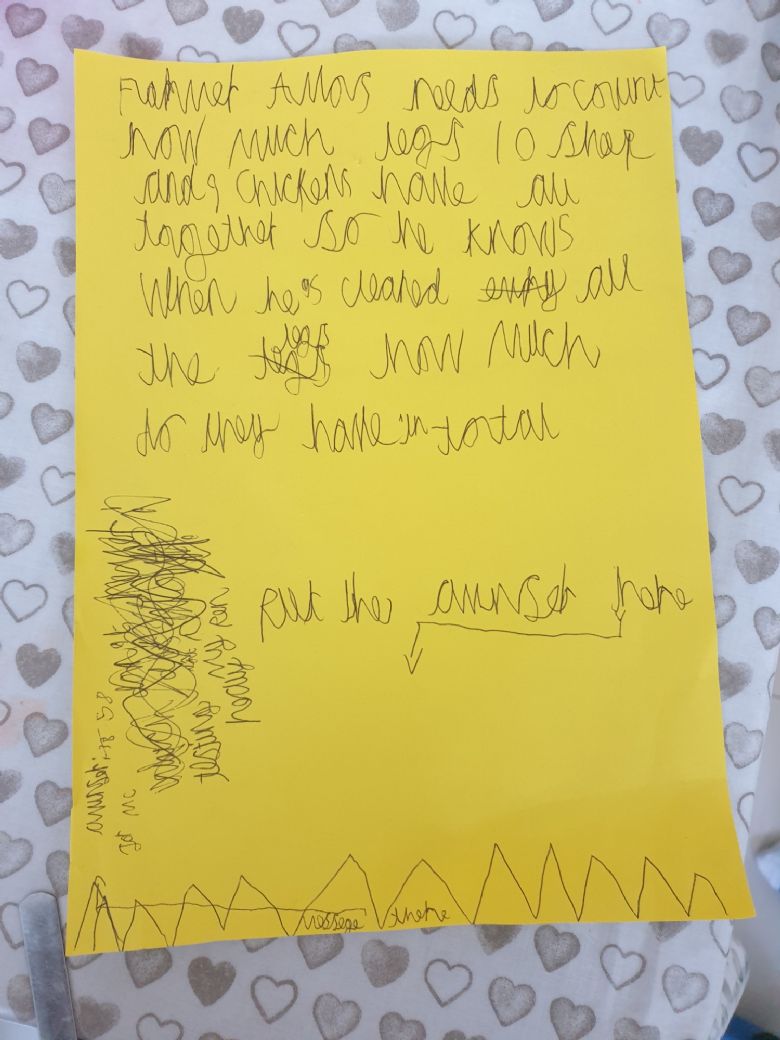 Farmer Amos needs to count
how much legs 10 sheep
and 9 chickens have all
together so he knows
when he's cleaned all
the legs how much
do they have in total
put the answer here
testing My pen
holly
answer: 58
message there